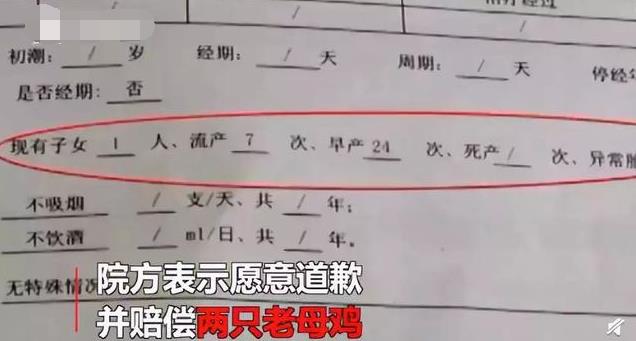 治疗经过
/ /
初潮: / 岁 经期: / 天 周期: / 天 停经年
是否经期: 否
现有子女 1 人、流产 7 次、早产 24 次、死产 / 次、异常胎
不吸烟 / 支/天、共 / 年;
不饮酒 / ml/日、共 / 年。
无特殊情况
院方表示愿意道歉
并赔偿两只老母鸡